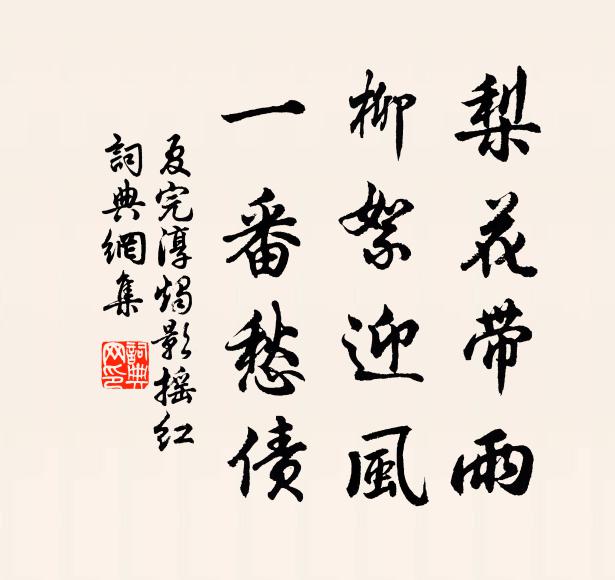 梨花带雨
柳絮迎風
一番愁债
夏完淳燭影摇红
詞典網集
詞典网印